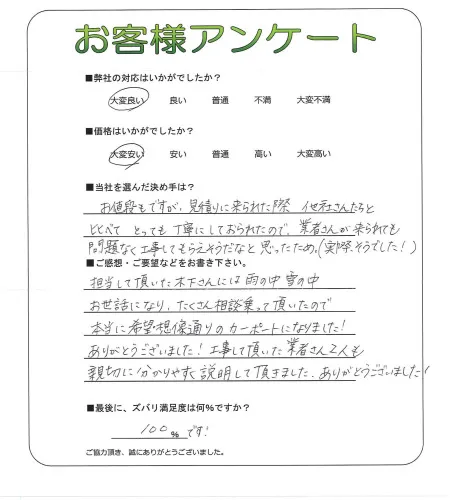 お客様アンケート
■弊社の対応はいかがでしたか?
大変良い 良い 普通 不満 大変不満
■価格はいかがでしたか?
大変安い 安い 普通 高い 大変高い
■当社を選んだ決め手は?
お値段もですが、見積りに来られた際 他社さんたちと
比べて とっても丁寧にしておられたので、業者さんが来られても
問題なく工事してもらえそうだなと思ったため。(実際、そうでした!)
■ご感想・ご要望などをお書き下さい。
担当して頂いた木下さんには 雨の中 雪の中
お世話になり、たくさん相談乗って頂いたので
本当に希望想像通りのカーポートになりました!
ありがとうございました! 工事して頂いた業者さん2人も
親切に分かりやすく説明して頂きました、ありがとうございました!
■最後に、ズバリ満足度は何%ですか?
100%です!
ご協力頂き、誠にありがとうございました。